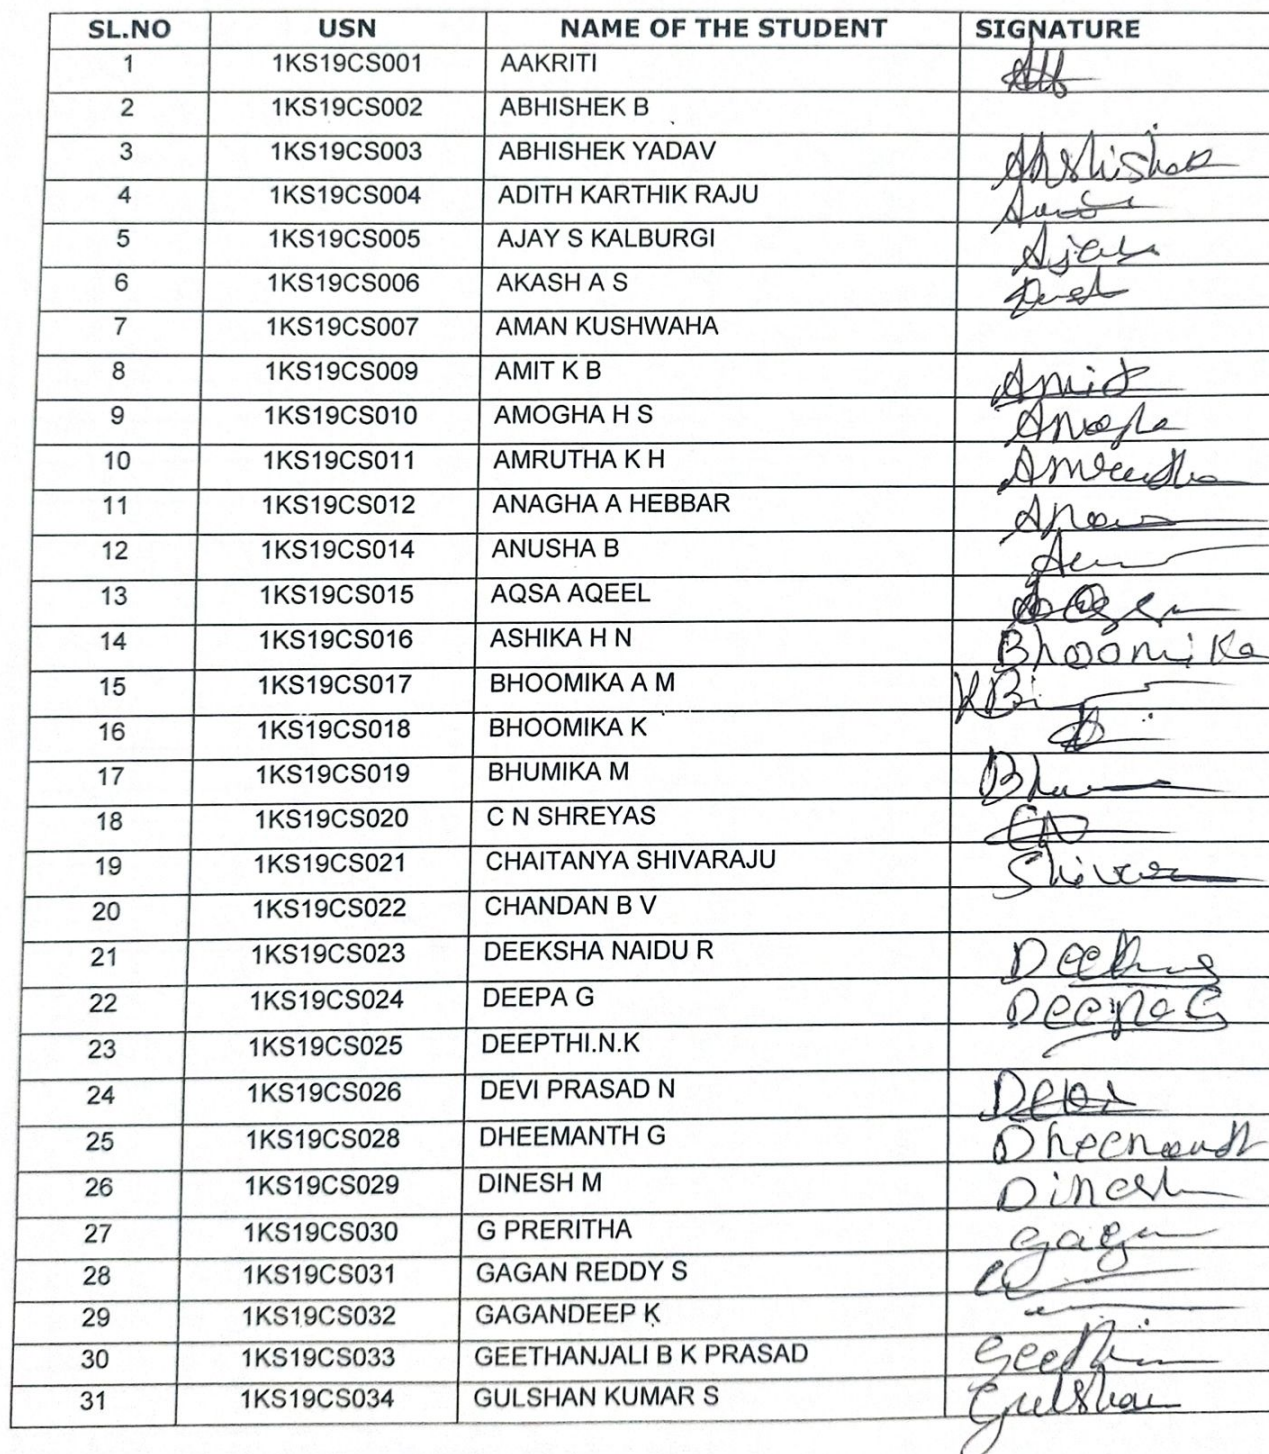 SL.NO USN NAME OF THE STUDENT SIGNATURE
1 1KS19CS001 AAKRITI
2 1KS19CS002 ABHISHEK B
3 1KS19CS003 ABHISHEK YADAV Abhishek
4 1KS19CS004 ADITH KARTHIK RAJU
5 1KS19CS005 AJAY S KALBURGI Ajay
6 1KS19CS006 AKASH A S
7 1KS19CS007 AMAN KUSHWAHA
8 1KS19CS009 AMIT K B Amit
9 1KS19CS010 AMOGHA H S Amogha
10 1KS19CS011 AMRUTHA K H Amrutha
11 1KS19CS012 ANAGHA A HEBBAR
12 1KS19CS014 ANUSHA B
13 1KS19CS015 AQSA AQEEL
14 1KS19CS016 ASHIKA H N Bhoomika
15 1KS19CS017 BHOOMIKA A M
16 1KS19CS018 BHOOMIKA K
17 1KS19CS019 BHUMIKA M
18 1KS19CS020 C N SHREYAS
19 1KS19CS021 CHAITANYA SHIVARAJU
20 1KS19CS022 CHANDAN B V
21 1KS19CS023 DEEKSHA NAIDU R
22 1KS19CS024 DEEPA G Deepa G
23 1KS19CS025 DEEPTHI.N.K
24 1KS19CS026 DEVI PRASAD N Devi
25 1KS19CS028 DHEEMANTH G Dheemanth
26 1KS19CS029 DINESH M Dinesh
27 1KS19CS030 G PRERITHA Gagan
28 1KS19CS031 GAGAN REDDY S
29 1KS19CS032 GAGANDEEP K
30 1KS19CS033 GEETHANJALI B K PRASAD
31 1KS19CS034 GULSHAN KUMAR S Gulshan